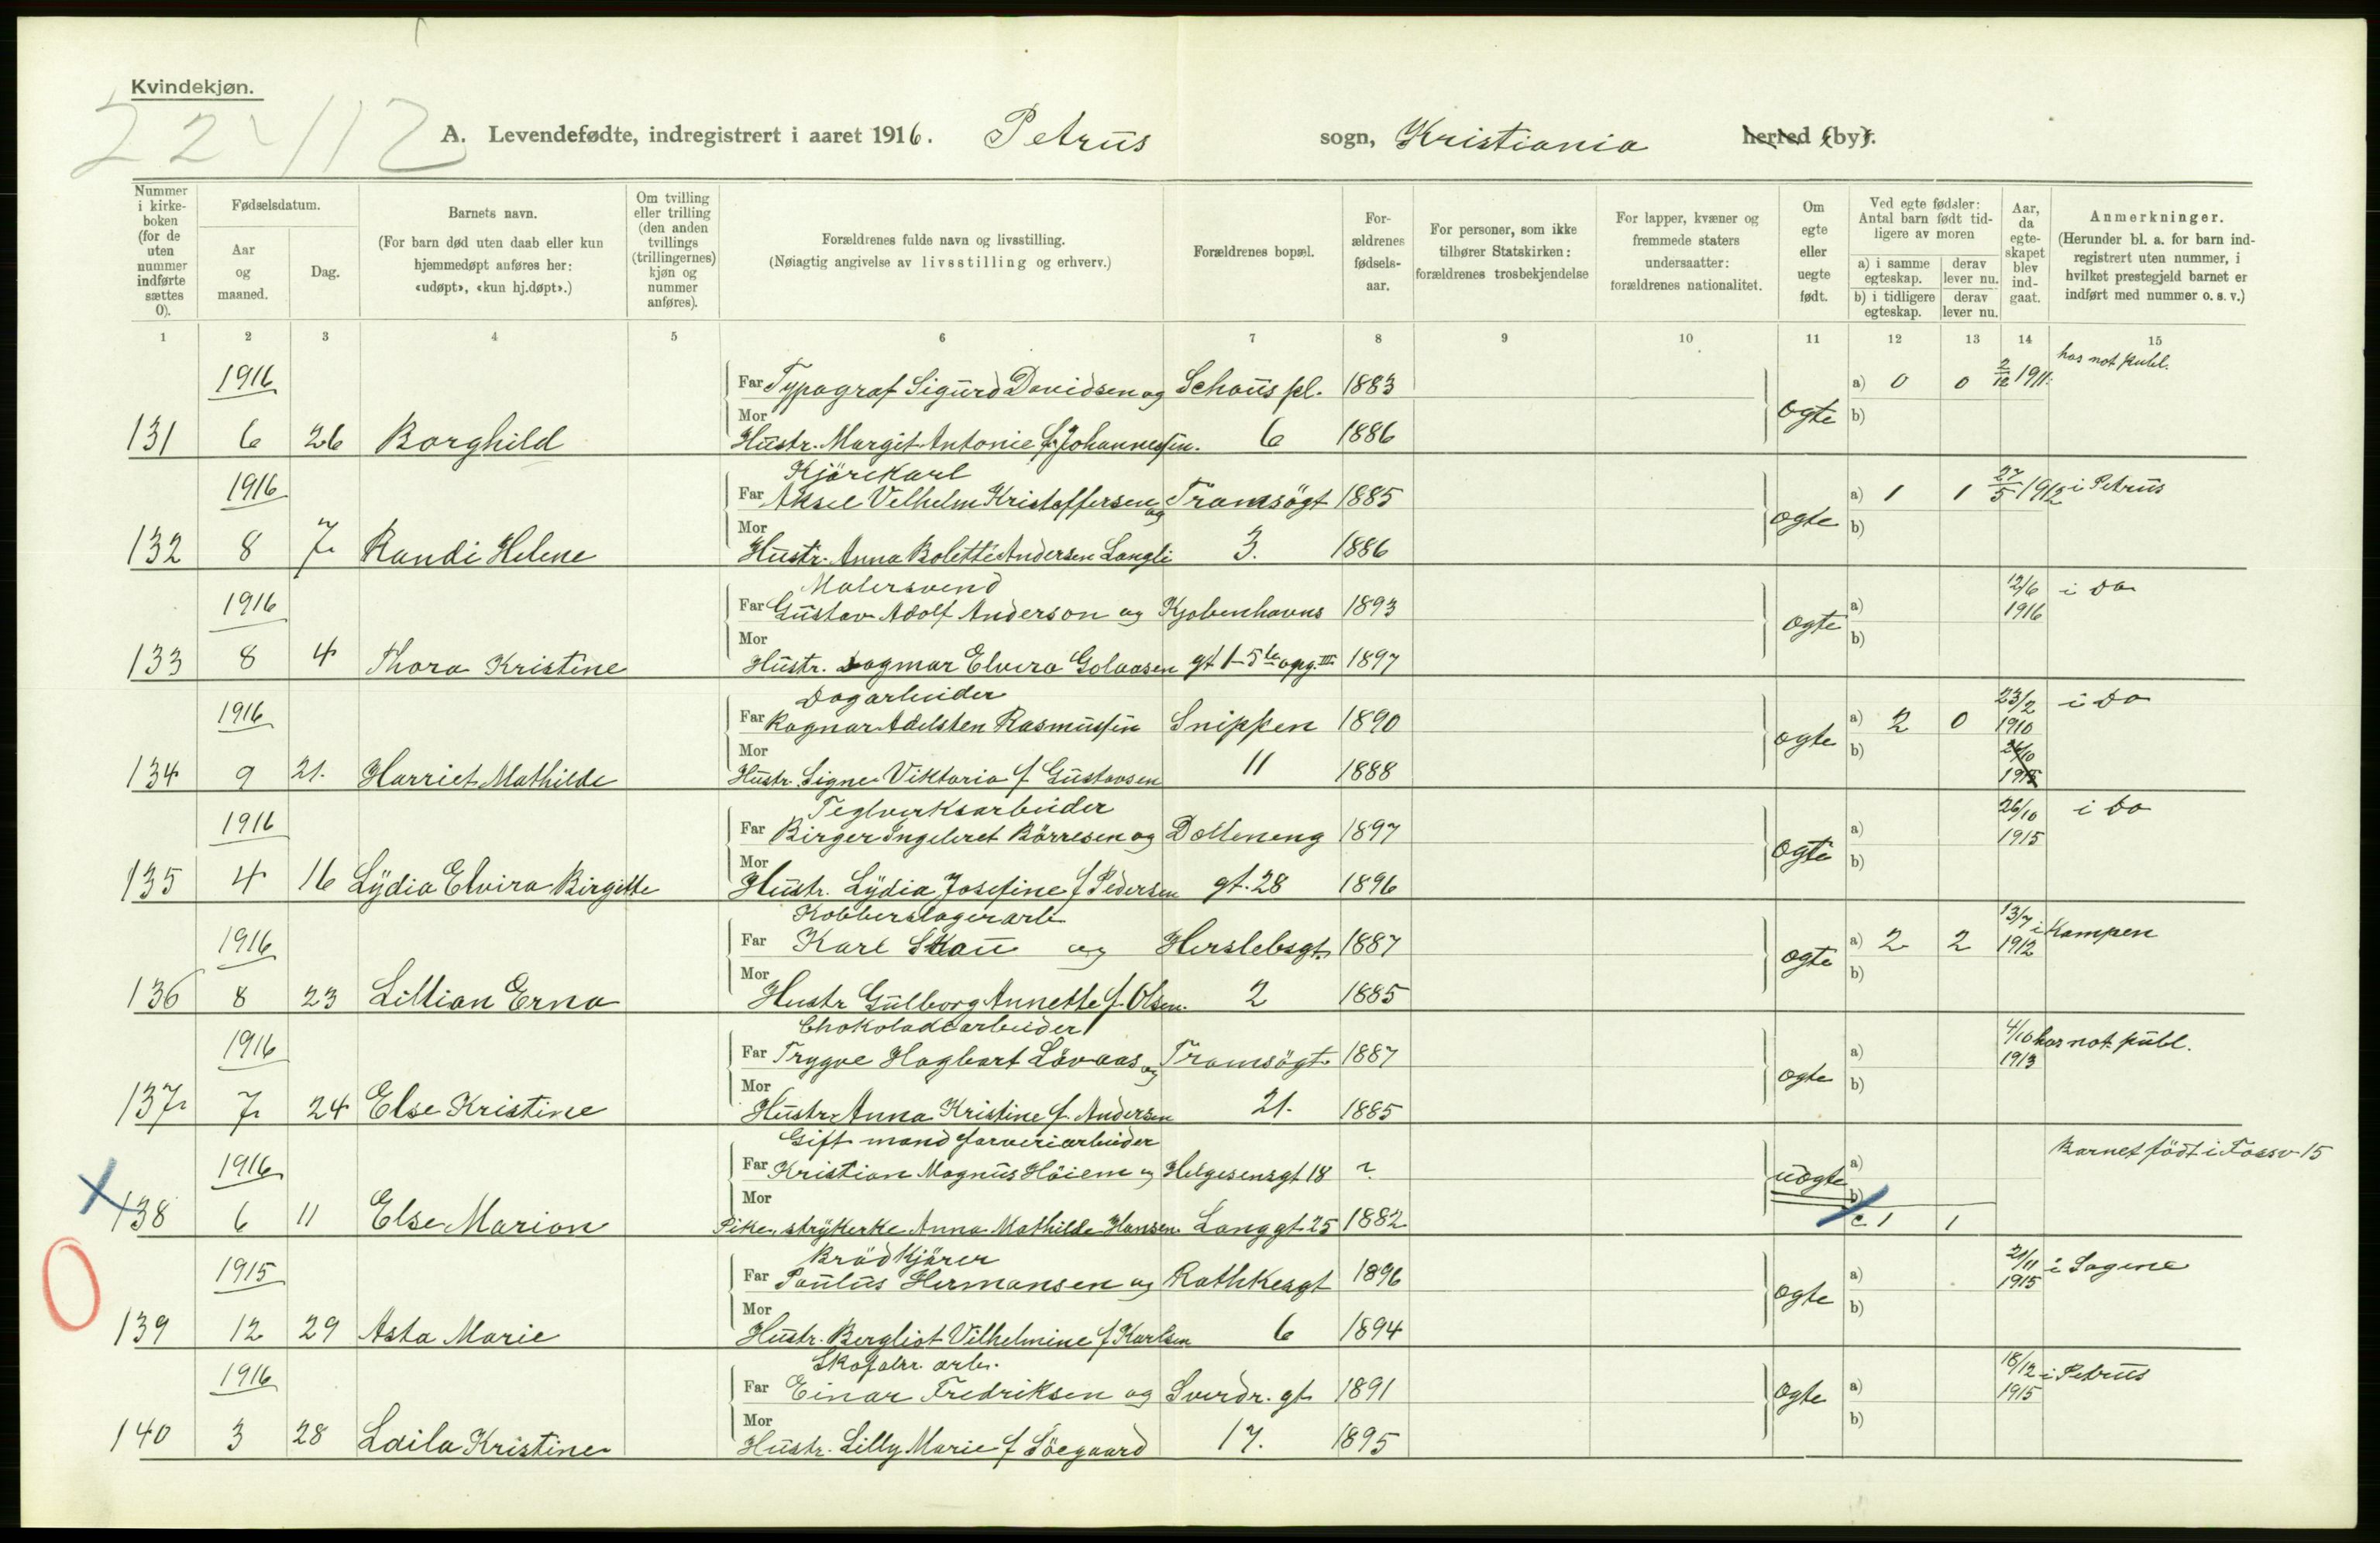 Kvindekjøn.
22 112
A. Levendefødte, indregistrert i aaret 1916. Petrus sogn, Kristiania herred (by).
Nummer i kirkeboken (for de uten nummer indførte sættes 0).
Fødselsdatum.
Aar og maaned.
Dag.
Barnets navn.
(For barn død uten daab eller kun hjemmedøpt anføres her: «udøpt», «kun hj.døpt».)
Om tvilling eller trilling (den anden tvillings (trillingernes) kjøn og nummer anføres).
Forældrenes fulde navn og livsstilling.
(Nøiagtig angivelse av livsstilling og erhverv.)
Forældrenes bopæl.
Forældrenes fødselsaar.
For personer, som ikke tilhører Statskirken: forældrenes trosbekjendelse
For lapper, kvæner og fremmede staters undersaatter: forældrenes nationalitet.
Om egte eller uegte født.
Ved egte fødsler: Antal barn født tidligere av moren
a) i samme egteskap.
derav lever nu.
b) i tidligere egteskap.
derav lever nu.
Aar, da egteskapet blev indgaat.
Anmerkninger.
(Herunder bl. a. for barn indregistrert uten nummer, i hvilket prestegjeld barnet er indført med nummer o. s. v.)
1 2 3 4 5 6 7 8 9 10 11 12 13 14 15
1916 Far Typograf Sigurd Davidsen og Schous pl. 1883 a) 0 0 2/12 1911 has not publ.
131 6 26 Borghild Mor Hustr. Margit Antonie f. Johannessen. 6 1886 Ogte b)
Kjörekarl
1916 Far Aksel Velhelm Kristoffersen og Tromsögt 1885 a) 1 1 27/5 1912 i Petrus
132 8 7 Randi Helene Mor Hustr. Anna Bolette Andersen Langli 3. 1886 ogte b)
Malersvend
1916 Far Gustav Adolf Anderson og Kjobenhavns 1893 a) 12/6 1916 i Do
133 8 4 Thora Kristine Mor Hustr. Dagmar Elvira Golaasen gt 1-5te opg. III 1897 ogte b)
Dagarbeider
1916 Far Ragnar Adelsten Rasmussen Snippen 1890 a) 2 0 23/2 1910 i Do
134 9 21. Harriet Mathilde Mor Hustr. Signe Viktoria f Gustavsen 11 1888 ogte b) 26/10 1915
Teglverksarbeider
1916 Far Birger Ingeleret Börresen og Dælleneng 1897 a) 26/10 1915 i Do
135 4 16 Lydia Elvira Birgitte Mor Hustr. Lydia Josefine f Pedersen gt. 28 1896 Ogte b)
Kobberslagerarb
1916 Far Karl Skau og Herslebsgt. 1887 a) 2 2 13/7 1912 i Kampen
136 8 23 Lillian Erna Mor Hustr Gulborg Annette f. Olsen. 2 1885 ogte b)
Chokoladearbeider
1916 Far Trygve Hagbart Lövaas og Tromsögt. 1887 a) 4/10 1913 has not publ.
137 7 24 Else Kristine Mor Hustr. Anna Kristine f. Andersen 21. 1885 ogte b)
Gift mand farveriarbeider
1916 Far Kristian Magnus Höiem og Helgesensgt 18 ? a) Barnet födt i Fossv 15
138 6 11 Else Marion Mor Pike, strykerke Anna Mathilde Hansen. Langgt. 25 1882 uogte b) c 1 1
Brödkjörer
1915 Far Paulus Hermansen og Rathkesgt 1896 a) 21/11 1915 i Sagene
139 12 29 Asta Marie Mor Hustr. Bergliot Vilhelmine f Karlsen 6 1894 ogte b)
Skofabr. arb.
1916 Far Einar Fredriksen og Sverdr. gt 1891 a) 18/12 1915 i Petrus
140 3 28 Laila Kristine Mor Hustr. Lilly Marie f Söegaard 17. 1895 ogte b)